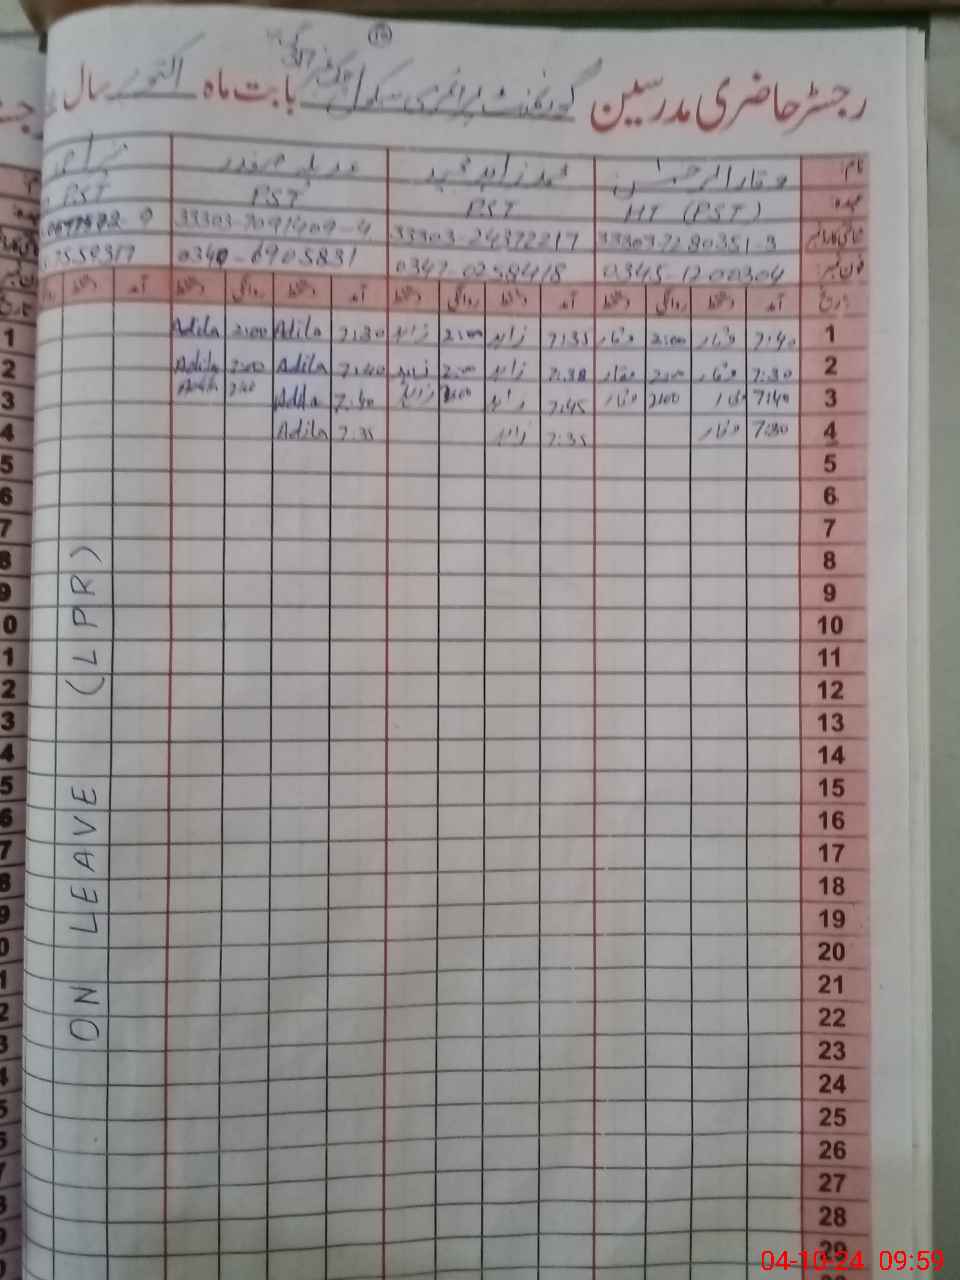 رجسٹر حاضری مدرسین گورنمنٹ پرائمری سکول بابت ماہ اکتوبر سال
نام وقار الرحمن محمد زاہد عدیلہ صفدر
عہدہ HT (PST) PST PST PST
33303-7280351-3 33303-24372217 33303-7091409-4
فون نمبر 0345-1200304 0347-0258418 0340-6905831 7559317
تاریخ آمد دستخط روانگی دستخط آمد دستخط روانگی دستخط آمد دستخط روانگی دستخط آمد دستخط
1 7:40 وقار 2:00 وقار 7:35 زاہد 2:00 زاہد 7:30 Adila 2:00 Adila
2 7:30 وقار 2:00 وقار 7:38 زاہد 2:00 زاہد 7:40 Adila 2:00 Adila
3 7:40 وقار 2:00 وقار 7:45 زاہد 2:00 زاہد 7:40 Adila Adila
4 7:30 وقار 7:35 زاہد 7:35 Adila
5
6
7
8
9
10
11
12
13
14
15
16
17
18
19
20
21
22
23
24
25
26
27
28
29
ON LEAVE (LPR)
04-10-24 09:59